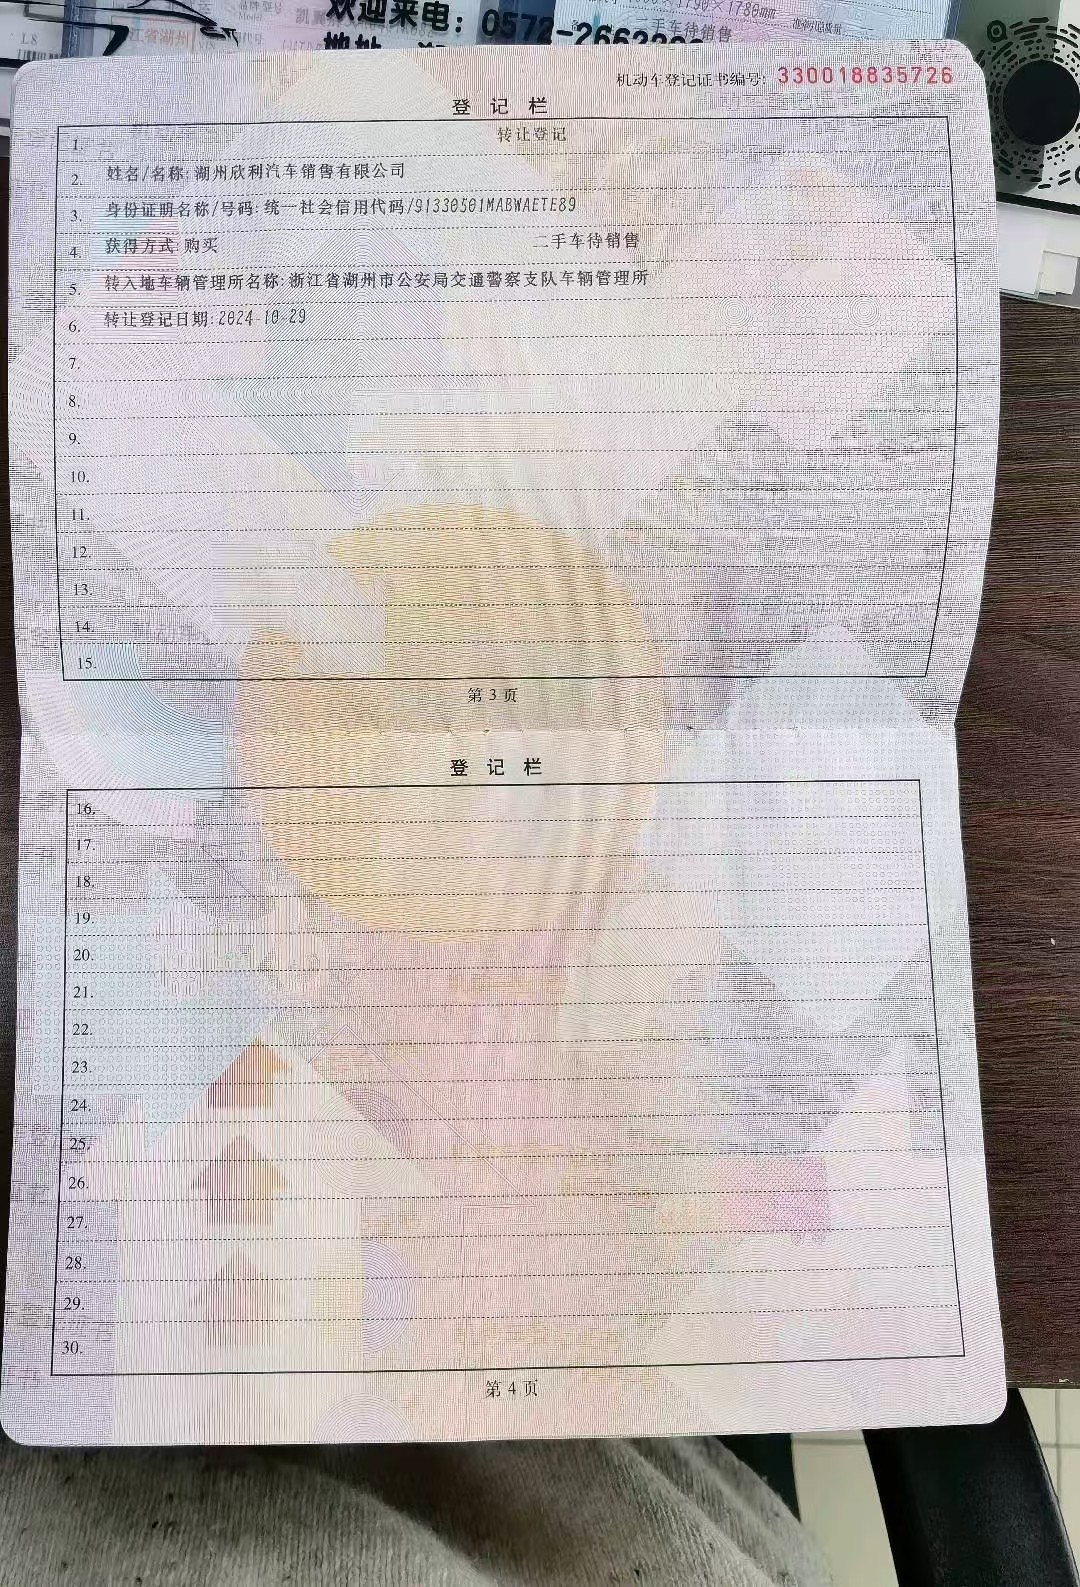 欢迎来电: 0572-2663
江省湖州
L8
二手车待销售
机动车登记证书编号: 330018835726
登 记 栏
1. 转让登记
2. 姓名/名称: 湖州欣利汽车销售有限公司
3. 身份证明名称/号码: 统一社会信用代码/91330501MABWAETE89
4. 获得方式: 购买 二手车待销售
5. 转入地车辆管理所名称: 浙江省湖州市公安局交通警察支队车辆管理所
6. 转让登记日期: 2024-10-29
7.
8.
9.
10.
11.
12.
13.
14.
15.
第 3 页
登 记 栏
16.
17.
18.
19.
20.
21.
22.
23.
24.
25.
26.
27.
28.
29.
30.
第 4 页